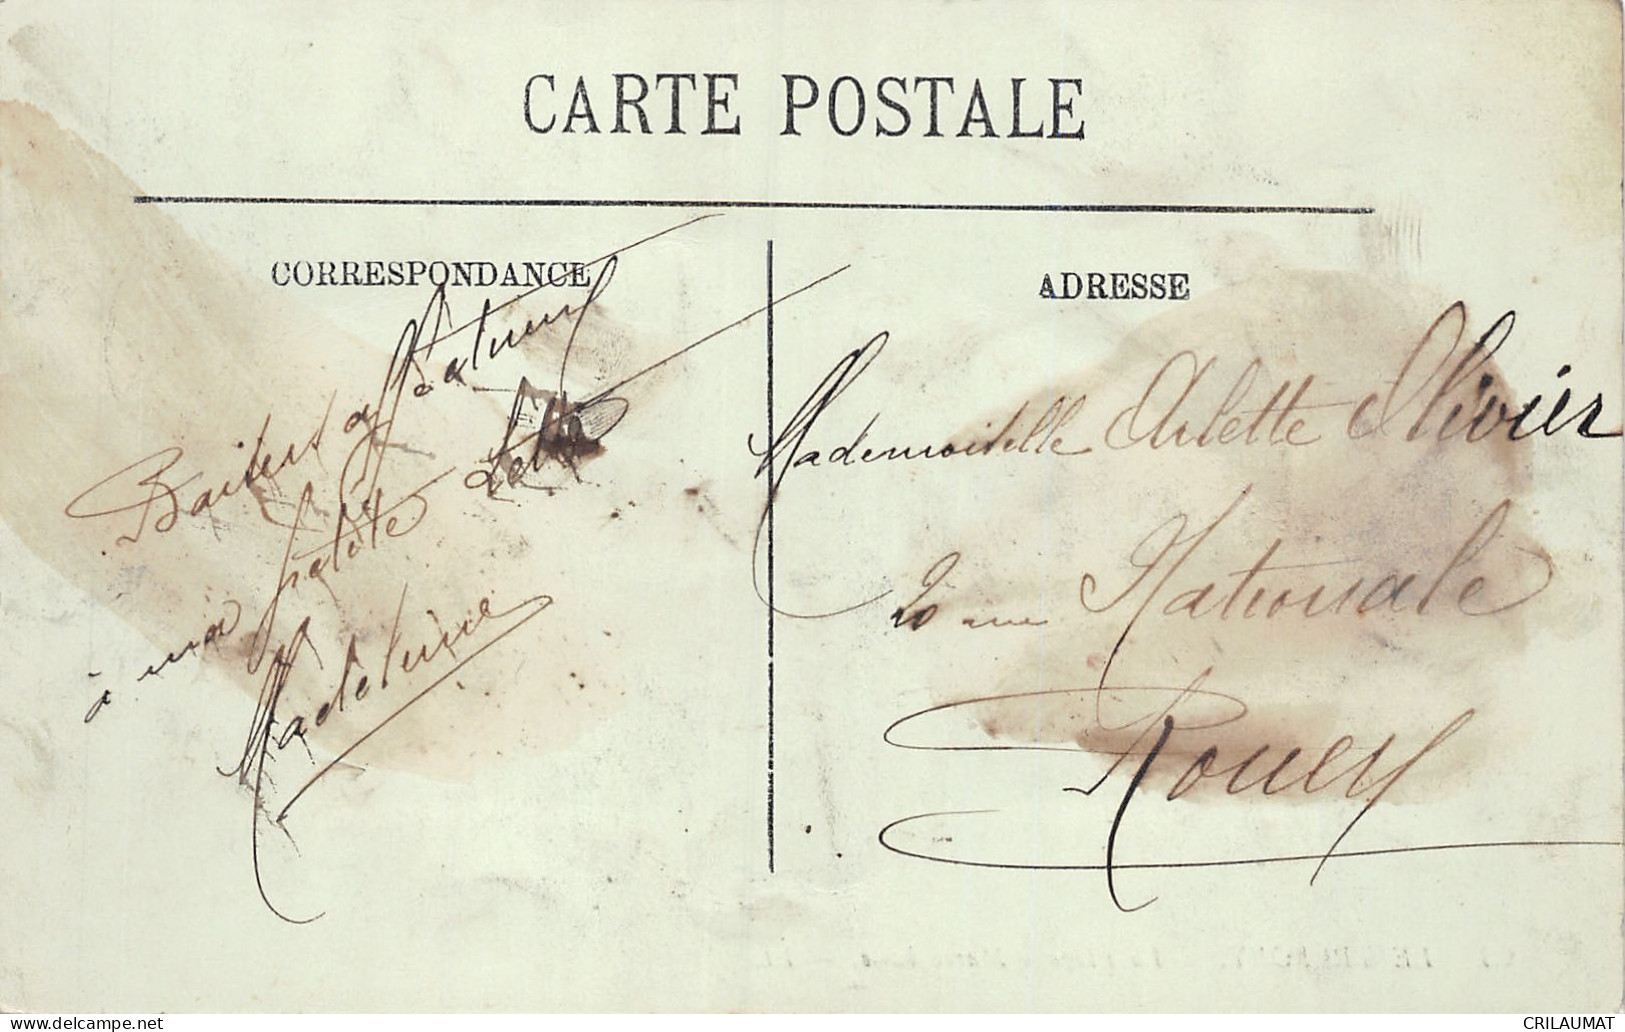 CARTE POSTALE
CORRESPONDANCE
Baisers affectueux
à ma petite
Madeleine
ADRESSE
Mademoiselle Arlette Olivier
20 rue Nationale
Rouen
CRILAUMAT